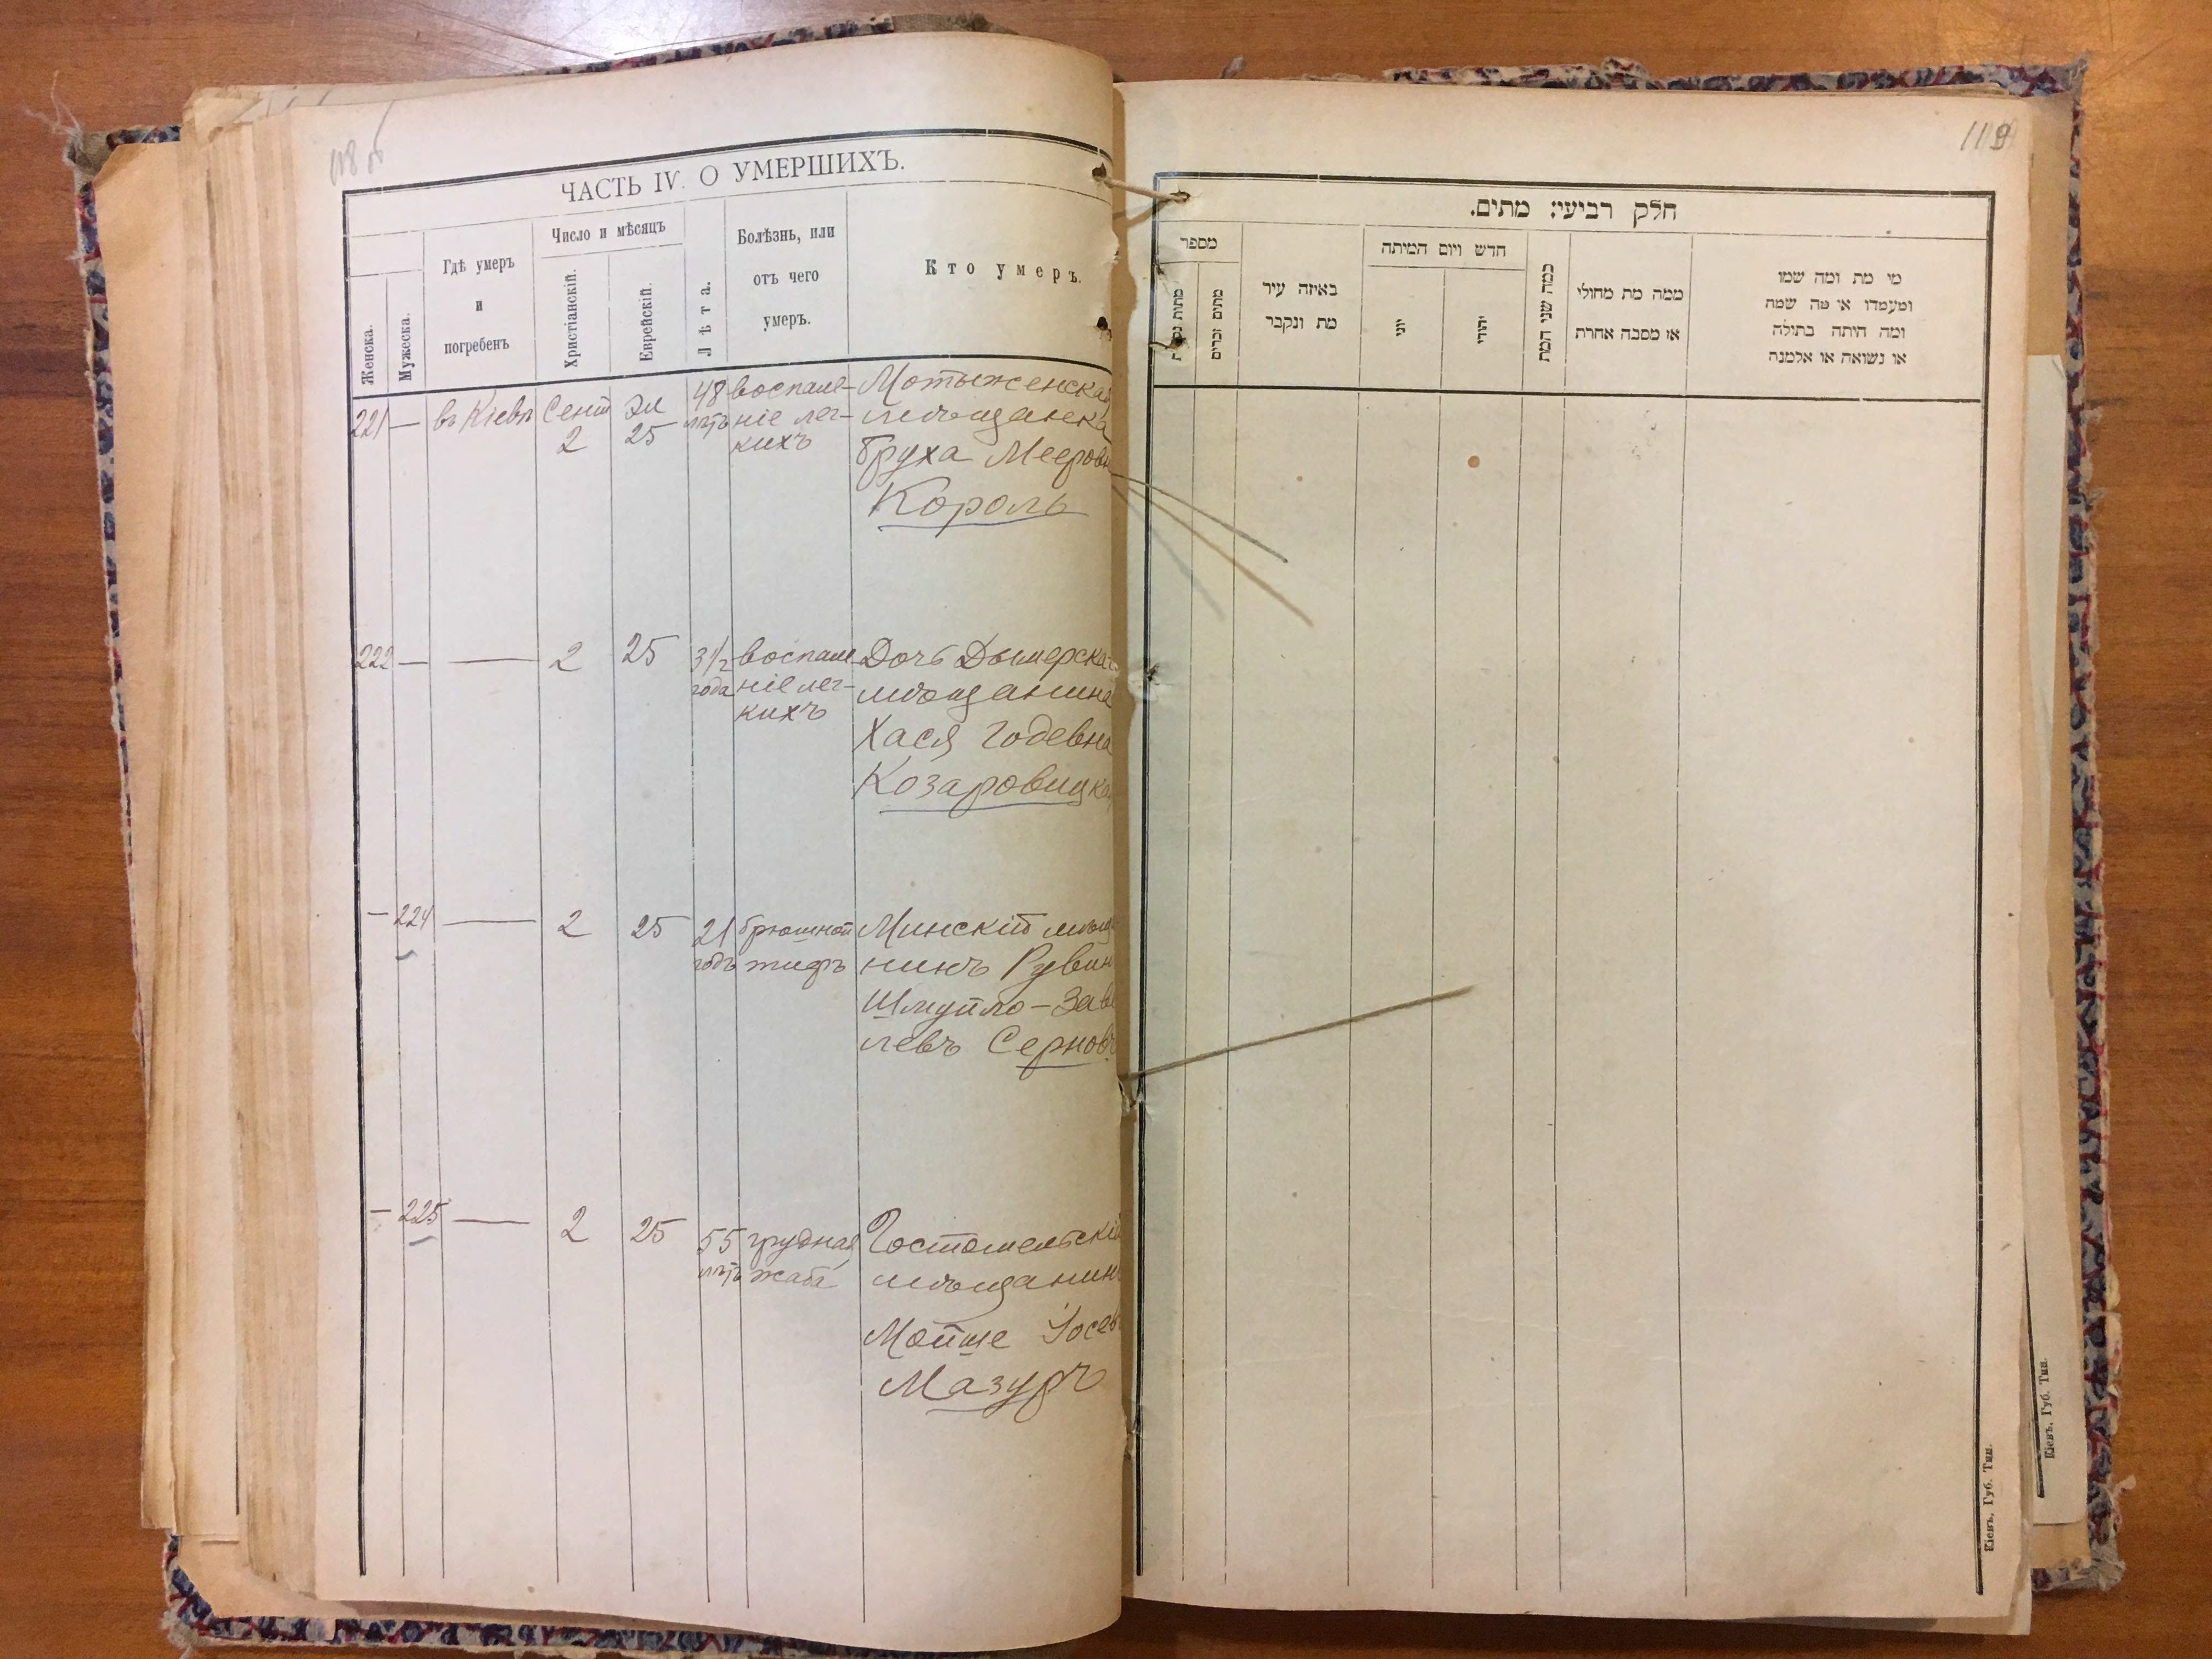 118 об
ЧАСТЬ IV. О УМЕРШИХЪ.
Женска.
Мужеска.
Гдѣ умеръ
и
погребенъ
Число и мѣсяцъ
Христіанскій.
Еврейскій.
Лѣта.
Болѣзнь, или
отъ чего
умеръ.
Кто умеръ.
221 — въ Кіевѣ Сент 2 Эл 25 48 лѣтъ
воспале-
ніе лег-
кихъ
Мотыженская
мѣщанка
Бруха Мееров
Король
222 — — 2 25 3 1/2 года
воспале
ніе лег-
кихъ
Дочь Дымерска
мѣщанина
Хася Годевна
Козаровицка
— 224 — 2 25 21 годъ
брюшной
тифъ
Минскій мѣщ
нинъ Рувин
Шмуйло-Зав
левъ Серновъ
— 225 — 2 25 55 лѣтъ
грудная
жаба
Гостомельскій
мѣщанин
Мойше Іосев
Мазуръ
119
חלק רביעי: מתים.
מספר
מתים זכרים
באיזה עיר
מת ונקבר
חדש ויום המיתה
יוני
יהודי
כמה שני המת
ממה מת מחולי
או מסבה אחרת
מי מת ומה שמו
ומעמדו או מה שמה
ומה היתה בתולה
או נשואה או אלמנה
Кіевъ, Губ. Тип.
Кіевъ, Губ. Тип.